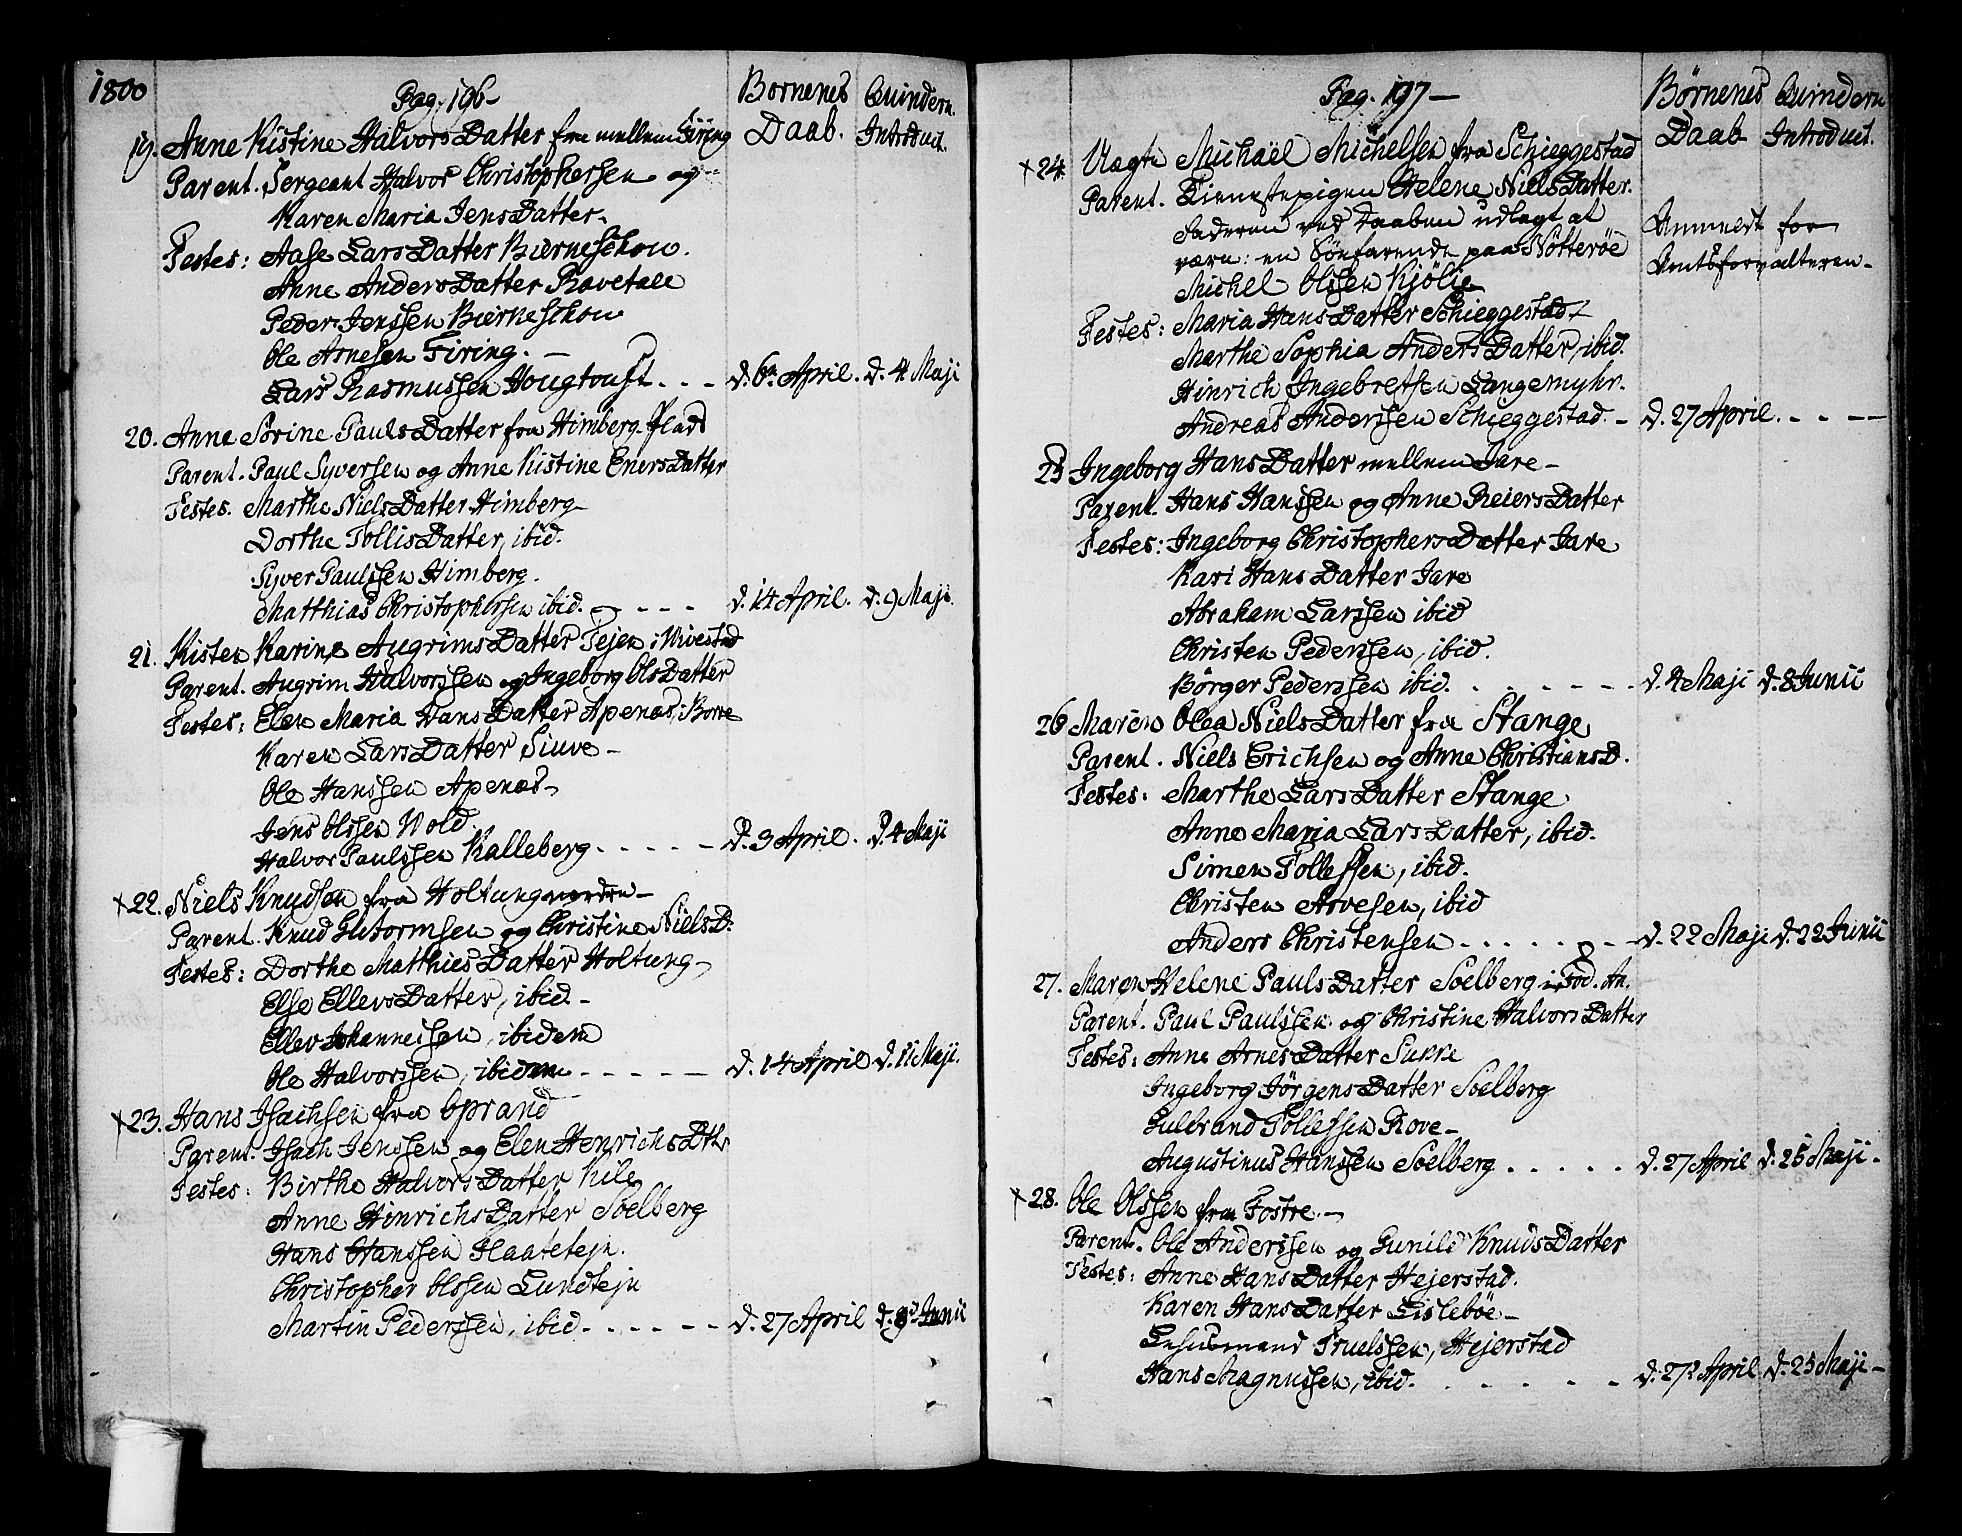 1800
Pag. 196-
Børnenes Daab.
Quindern. Introduct.
19. Anne Kistine HalvorsDatter fra mellem Firing
Parent. Sergeant Halvor Christophersen og
Karen Maria JensDatter.
Testes: Aase LarsDatter Biørneschou.
Anne AndersDatter Ravetale
Peder Jenssen Biørneschou
Ole Arnesen Firing. —
Lars Rasmussen Hougtouft . . - d. 6te April. d. 4 Maji
20. Anne Sørine PaulsDatter fra Himberg-Plads
Parent. Paul Syversen og Anne Kistine EnersDatter
Testes. Marthe NielsDatter Himberg-
Dorthe TollisDatter, ibid.
Syver Paulssen Himberg.
Matthias Christophersen ibid. - - - d. 14 April. d. 9 Maji.
21. Kisten Karine AugrimsDatter Tejen i Vivestad
Parent. Augrim Halvorssen og Ingeborg OlsDatter
Testes: Elen Maria HansDatter Apenæs, i Borre
Karen LarsDatter Siuve -
Ole Hanssen Apenæs-
Jens Olssen Wold
Halvor Paulssen Kalleberg - - - - - d. 3 April. d. 4 Maji
+22. Niels Knudsen fra Holtung nordre-
Parent. Knud Guttormsen og Christine NielsD.
Testes: Dorthe MatthiesDatter Holtung-
Else EllevsDatter, ibid. -
Ellev Johannessen, ibidem
Ole Halvorssen, ibidem - - - - - d. 14 April d. 11 Maji.
+23. Hans Isachsen fra Oprand
Parent. Isach Jenssen og Elen HenrichsDttr
Testes: Birthe HalvorsDatter Kile
Anne HinrichsDatter Soelberg
Hans Hanssen Flaatetejn.
Christopher Olssen Lundtejn
Martin Pederssen, ibid - - - - - d. 27 April d. Junii
Pag. 197 —
Børnenes Daab
Quindern Introduct.
+24. Uægte Michaël Michelsen fra Schieggestad
Parent. Tienestepigen Helene NielsDatter.
Faderen ved Daaben udlagt at
være: en Søefarende paa Nøtterøe
Michel Olssen Kjølie
Anmeldt for
Amtsforvalteren -
Testes: Maria HansDatter Schieggestad
Marthe Sophia AndersDatter, ibid.
Hinrich Ingebretsen Langemyhr.
Andreas Anderssen Schieggestad. - d. 27 April. - - - -
25 Ingeborg HansDatter mellem Jare -
Parent. Hans Hanssen og Anne ReiersDatter
Testes: Ingeborg ChristophersDatter Jare
Kari HansDatter Jare
Abraham Larssen ibid
Christen Pederssen, ibid.
Børger Pederssen ibid. - - - - - d. 4 Maji d. 8 Junii
26 Maren Olea NielsDatter fra Stange
Parent. Niels Erichsen og Anne ChristiansD.
Testes: Marthe LarsDatter Stange
Anne Maria LarsDatter, ibid.
Simen Tollefsen, ibid.
Christen Arvesen, ibid
Anders Christensen - - - - - - d. 22 Maji d. 22 Junii
27. Maren Helene PaulsDatter Soelberg i Sod. An.
Parent. Paul Paulssen og Christine HalvorsDatter
Testes: Anne ArnesDatter Sukke
Ingeborg JørgensDatter Soelberg
Gulbrand Tollefsen Rove-
Augustinus Hanssen Soelberg . . . . . d. 27 April d. 25 Maji -
+28. Ole Olssen fra Fostre. -
Parent. Ole Anderssen og Gunild KnudsDatter
Testes: Anne HansDatter Hejerstad.
Karen HansDatter Lislebøe-
Truelssen, Hejerstad
Hans Magnussen, ibid. - - - - - d. 27 April d. 25 Maji -